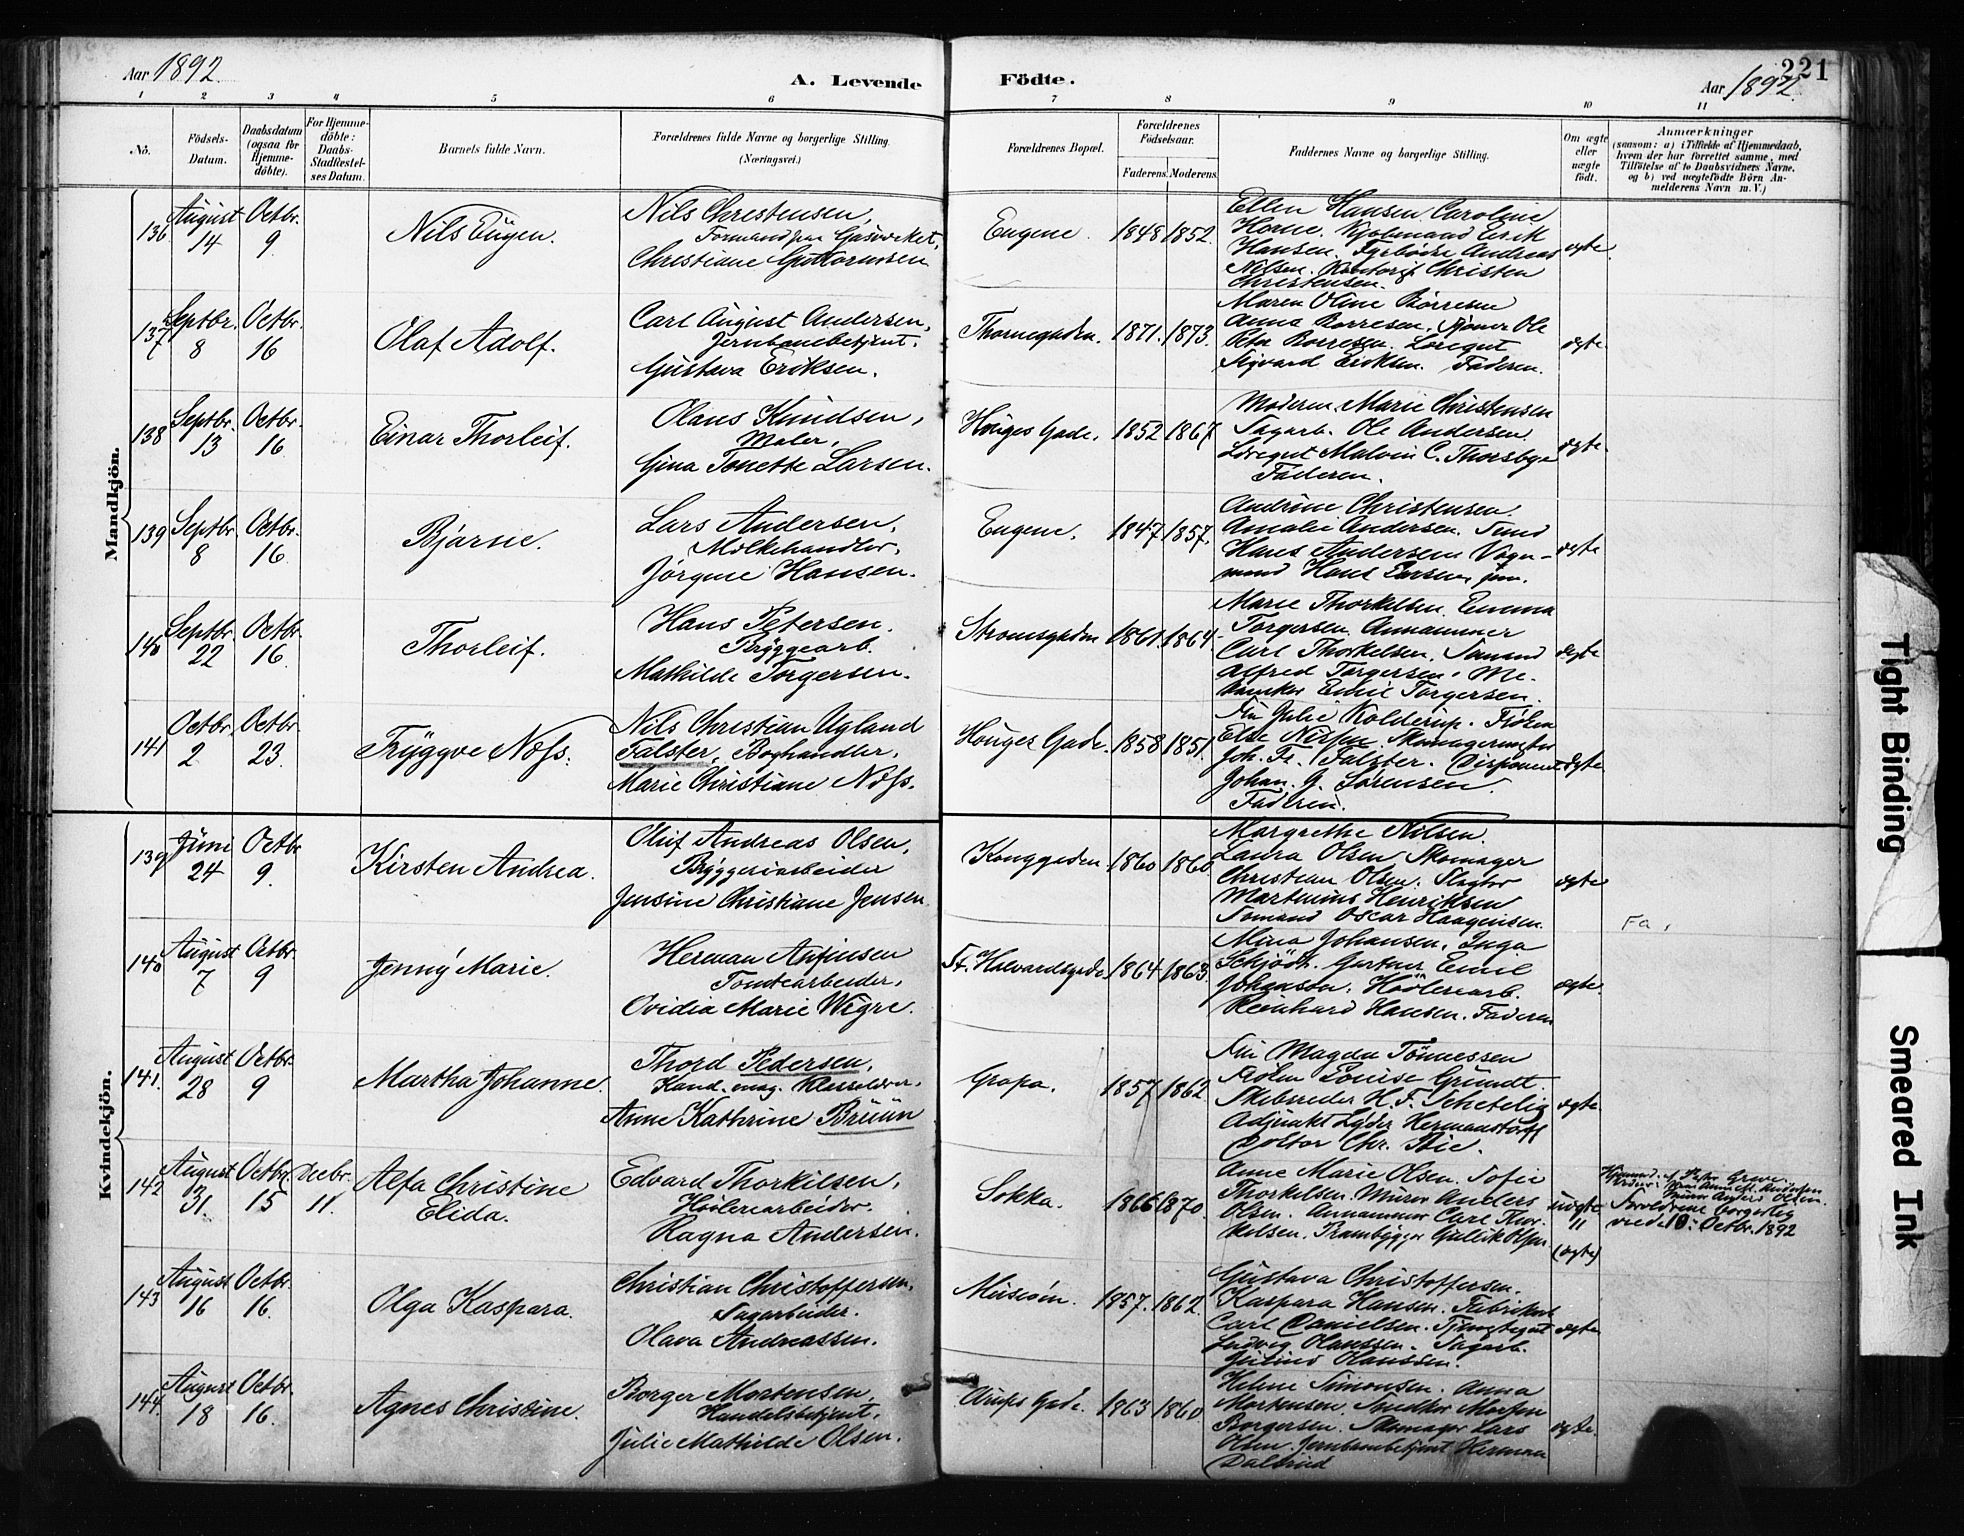 Aar 1892.
A. Levende Födte.
Aar 1892.
221
1 2 3 4 5 6 7 8 9 10 11
No.
Födsels-Datum.
Daabsdatum (ogsaa for Hjemme-döbte).
For Hjemme-döbte: Daabs-Stadfæstel-ses Datum.
Barnets fulde Navn.
Forældrenes fulde Navne og borgerlige Stilling.
(Næringsvei.)
Forældrenes Bopæl.
Forældrenes Födselsaar.
Faderens. Moderens.
Faddernes Navne og borgerlige Stilling.
Om ægte eller uægte födt.
Anmærkninger
(saasom: a) i Tilfælde af Hjemmedaab,
hvem der har forrettet samme, med
Tilföielse af to Daabsvidners Navne,
og b) ved uægtefödte Börn An-
melderens Navn m. V.)
Mandkjön.
136 August 14 Octbr. 9 Nils Eugen.
Nils Christensen,
Formand paa Gasverket,
Christiane Guttormsen
Eugene. 1848 1852.
Ellen Hansen. Caroline
Horne. Kjöbmand Erik
Hansen. Fyrböder Andreas
Nilsen. Christen
Christensen.
ægte.
137 Septbr. 8 Octbr. 16 Olaf Adolf.
Carl August Andersen,
Jernbanebetjent.
Gustava Eriksen.
Thornegaden. 1871. 1873.
Maren Oline Börresen
Anna Borresen. Ole
Peter Borresen. Löregut
Sigvard Eriksen. Faderen.
ægte.
138 Septbr. 13 Octbr. 16 Einar Thorleif.
Olaus Knudsen,
Maler,
Gina Tonette Larsen.
Houges Gade. 1852 1867
Moderen. Marie Christensen
Sagarb. Ole Andersen
Löregut Malvin C. Thorsbye
Faderen.
ægte.
139 Septbr. 8 Octbr. 16. Bjarne.
Lars Andersen,
Melkehandler,
Jörgine Hansen.
Eugene. 1847 1857.
Andrine Christensen.
Amalie Andersen.
Hans Andersen Vogn-
mand Hans Larsen jun.
ægte
140 Septbr. 22 Octbr. 16. Thorleif.
Hans Petersen.
Bryggearb.
Mathilde Torgersen.
Stromsgaden 1861. 1864.
Marie Thorkelsen. Emma
Torgersen. Annammer
Carl Thorkelsen. Sömand
Alfred Torgersen. Me-
kaniker Emil Torgersen.
ægte
141 Octbr. 2 Octbr. 23. Tryggve Nöss.
Nils Christian Ugland
Falster, Boghandler,
Marie Christiane Nöss.
Houges Gade. 1858 1851.
Fru Julie Kolderup. Fröken
Else Nissen. Skomagermester
Joh. Fr. Falster. Disponent
Johan G. Sörensen.
Faderen.
ægte
Kvindekjön.
139 Juni 24 Octbr 9. Kirsten Andrea.
Oluf Andreas Olsen,
Bryggeriarbeider
Jensine Christiane Jensen.
Konggaden. 1860 1860
Margrethe Nilsen.
Laura Olsen. Skomager
Christian Olsen. Slagter
Martinius Henriksen
Sömand Oscar Haagensen.
ægte
Fa,
140 August 7 Octbr. 9 Jenny Marie.
Herman Anfinsen
Tomtearbeider,
Ovidia Marie Wegre.
St. Halvardsgade 1864 1863.
Mina Johansen. Inga
Schjödt. Gartner Emil
Johansen. Hövlerearb.
Reinhard Hansen. Faderen
ægte.
141. August 28 Octbr. 9 Martha Johanne.
Thord Pedersen,
Kand. mag.
Anne Kathrine Bruun
Gropa. 1857 1862.
Fru Magda Tönnessen
Fröken Louise Grundt.
Skibsreder H. F. Schetelig
Adjunkt Lyder Hermanstorff
Doktor Chr. Bie.
ægte.
142 August 31. Octbr. 15 Decbr. 11. Alfa Christine
Elida.
Edvard Thorkilsen,
Hövlerearbeider.
Ragna Andersen.
Sokka. 1866 1870.
Anne Marie Olsen. Sofie
Thorkelsen. Murer Anders
Olsen. Annammer Carl Thor-
kelsen. Brambygger Gullik Olsen
uægte
"
(ægte)
Forældrene borgerlig
viede 10. Octbr. 1892
143 August 16 Octbr. 16. Olga Kaspara.
Christian Christoffersen.
Sagarbeider.
Olava Andreassen.
Museum. 1857. 1862.
Gustava Christoffersen.
Kaspara Hansen. Fabrikarb
Carl Danielsen.
Ludvig Olaussen. Sagarb.
Julius Olaussen.
ægte
144. August 18 Octbr. 16. Agnes Christine.
Borger Mortensen,
Handelsbetjent,
Julie Mathilde Olsen.
Gade. 1863 1860
Helene Simonsen. Anna
Mortensen. Snedker Morten
Borgersen. Skomager Lars
Olsen. Jernbanebetjent Herman
Dalsrud
ægte.
Tight Binding
Smeared Ink